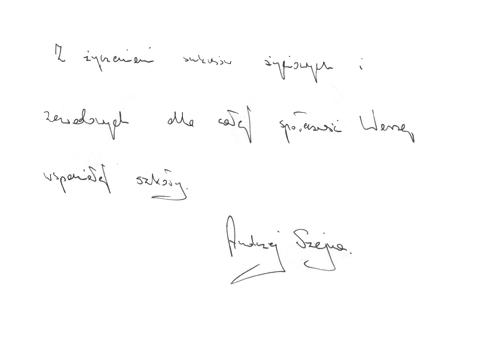 Z życzeniami sukcesów życiowych i
zawodowych dla całej społeczności Waszej
wspaniałej szkoły.
Andrzej Szejna.